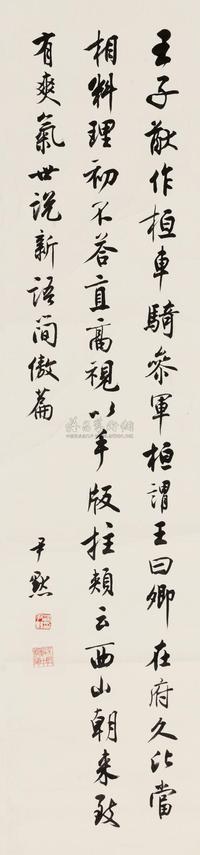 王子猷作桓車騎參軍桓謂王曰卿在府久比當
相料理初不答直高視以手版拄頰云西山朝來致
有爽氣世説新語簡傲篇
尹默